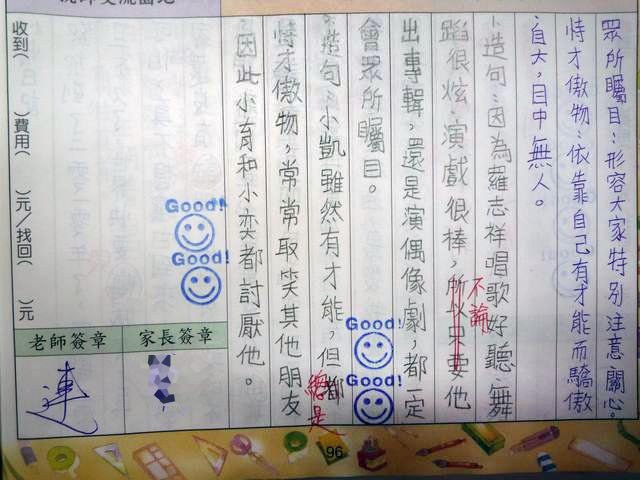 眾所矚目：形容大家特別注意、關心。
恃才傲物：依靠自己有才能而驕傲
自大，目中無人。
造句：因為羅志祥唱歌好聽、舞
蹈很炫、演戲很棒，所以只要他
不論
出專輯，還是演偶像劇，都一定
會眾所矚目。
造句：小凱雖然有才能，但都
總是
恃才傲物，常常取笑其他朋友
因此小育和小奕都討厭他。
Good!
Good!
Good!
Good!
收到（　）費用（　）元／找回（　）元
家長簽章
老師簽章
連
96